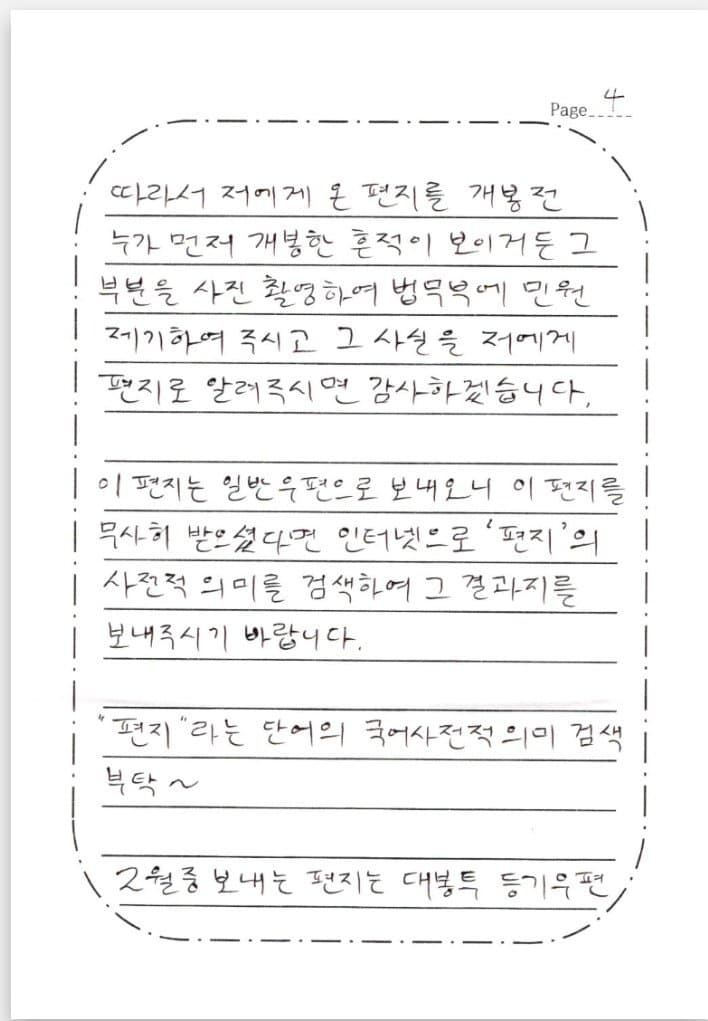 Page 4
따라서 저에게 온 편지를 개봉전
누가 먼저 개봉한 흔적이 보이거든 그
부분을 사진 촬영하여 법무부에 민원
제기하여 주시고 그 사실을 저에게
편지로 알려주시면 감사하겠습니다.
이 편지는 일반우편으로 보내오니 이 편지를
무사히 받으셨다면 인터넷으로 '편지'의
사전적 의미를 검색하여 그 결과지를
보내주시기 바랍니다.
"편지"라는 단어의 국어사전적 의미 검색
부탁~
2월중 보내는 편지는 대봉투 등기우편